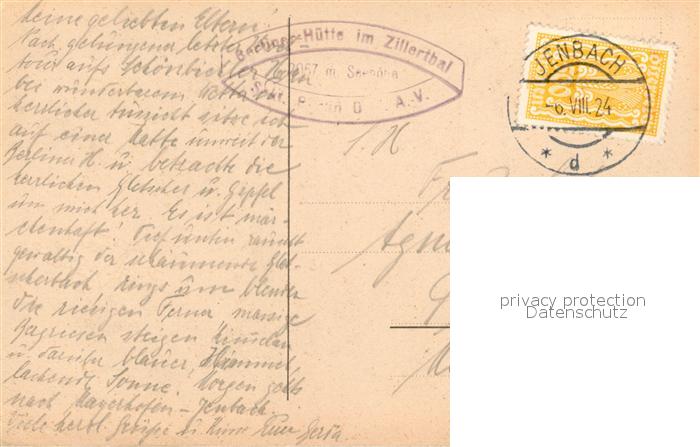 Meine geliebten Eltern!
Nach gelungener, letzter
tour aufs Schönbichler Horn
bei wunderbarem
herrlicher Aussicht sitze ich
auf einer Matte unweit der
Berliner H. u. betrachte die
herrlichen Gletscher u. Gipfel
um mich her. Es ist mär-
chenhaft! Tief unten rauscht
gewaltig der schäumende Glet-
scherbach rings um blenden
die riesigen Ferner massige
Bergriesen steigen hinauf
u. darüber blauer Himmel,
lachende Sonne. Morgen gehts
nach Mayerhofen - Jenbach.
Viele herzl. Grüße u. Küsse Euer
Berliner-Hütte im Zillertal
2057 m. Seehöhe
Sekt. D. A.V.
JENBACH
-6.VIII.24
* d *
privacy protection
Datenschutz